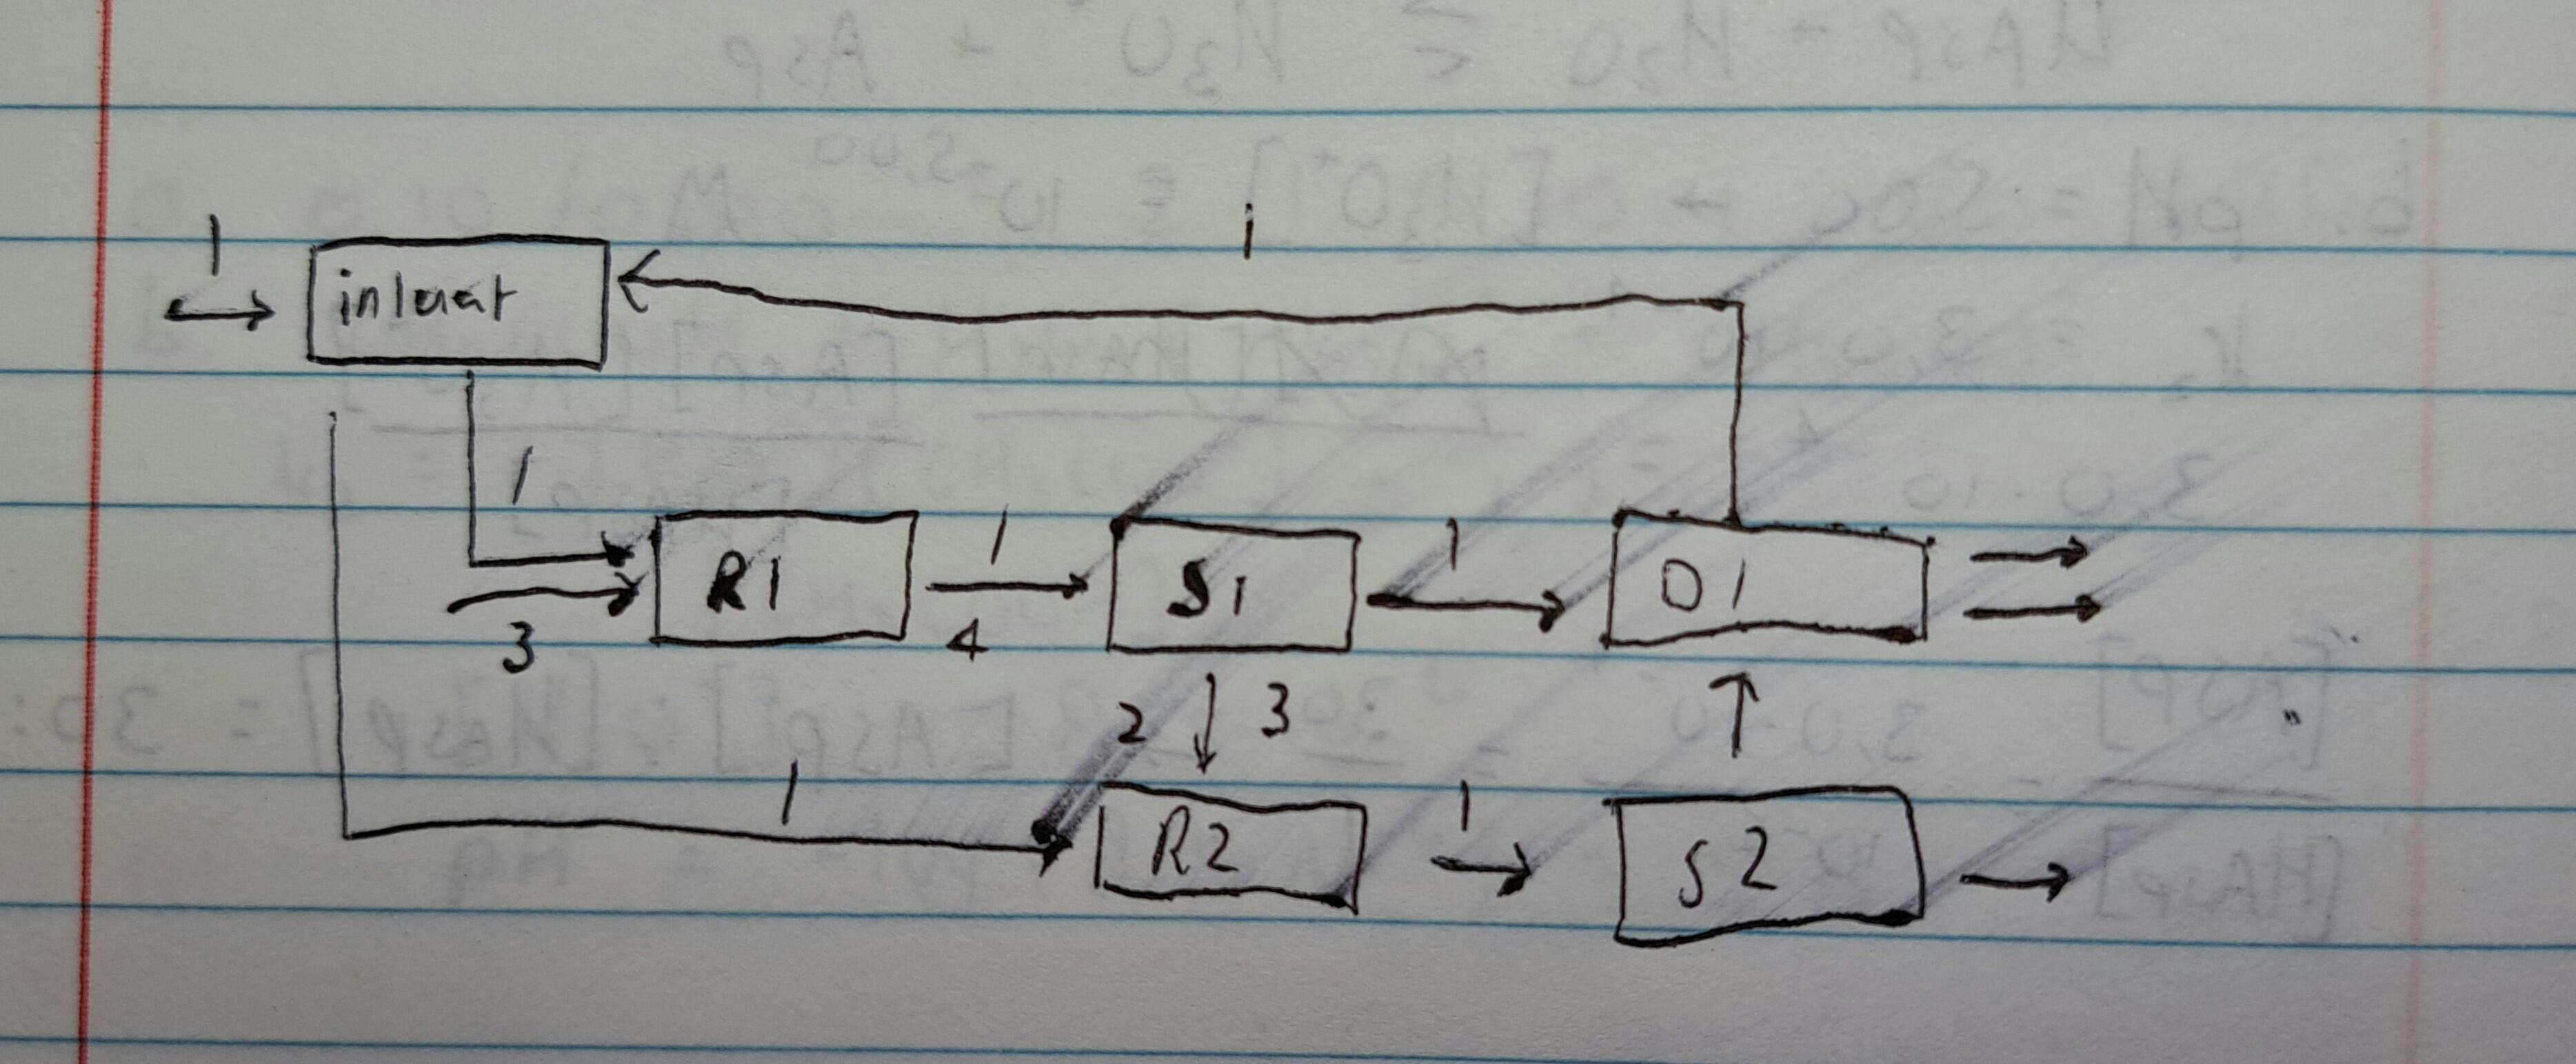 1
i
1
R1
1
S1
1
D1
3
4
2
3
1
R2
1
S2